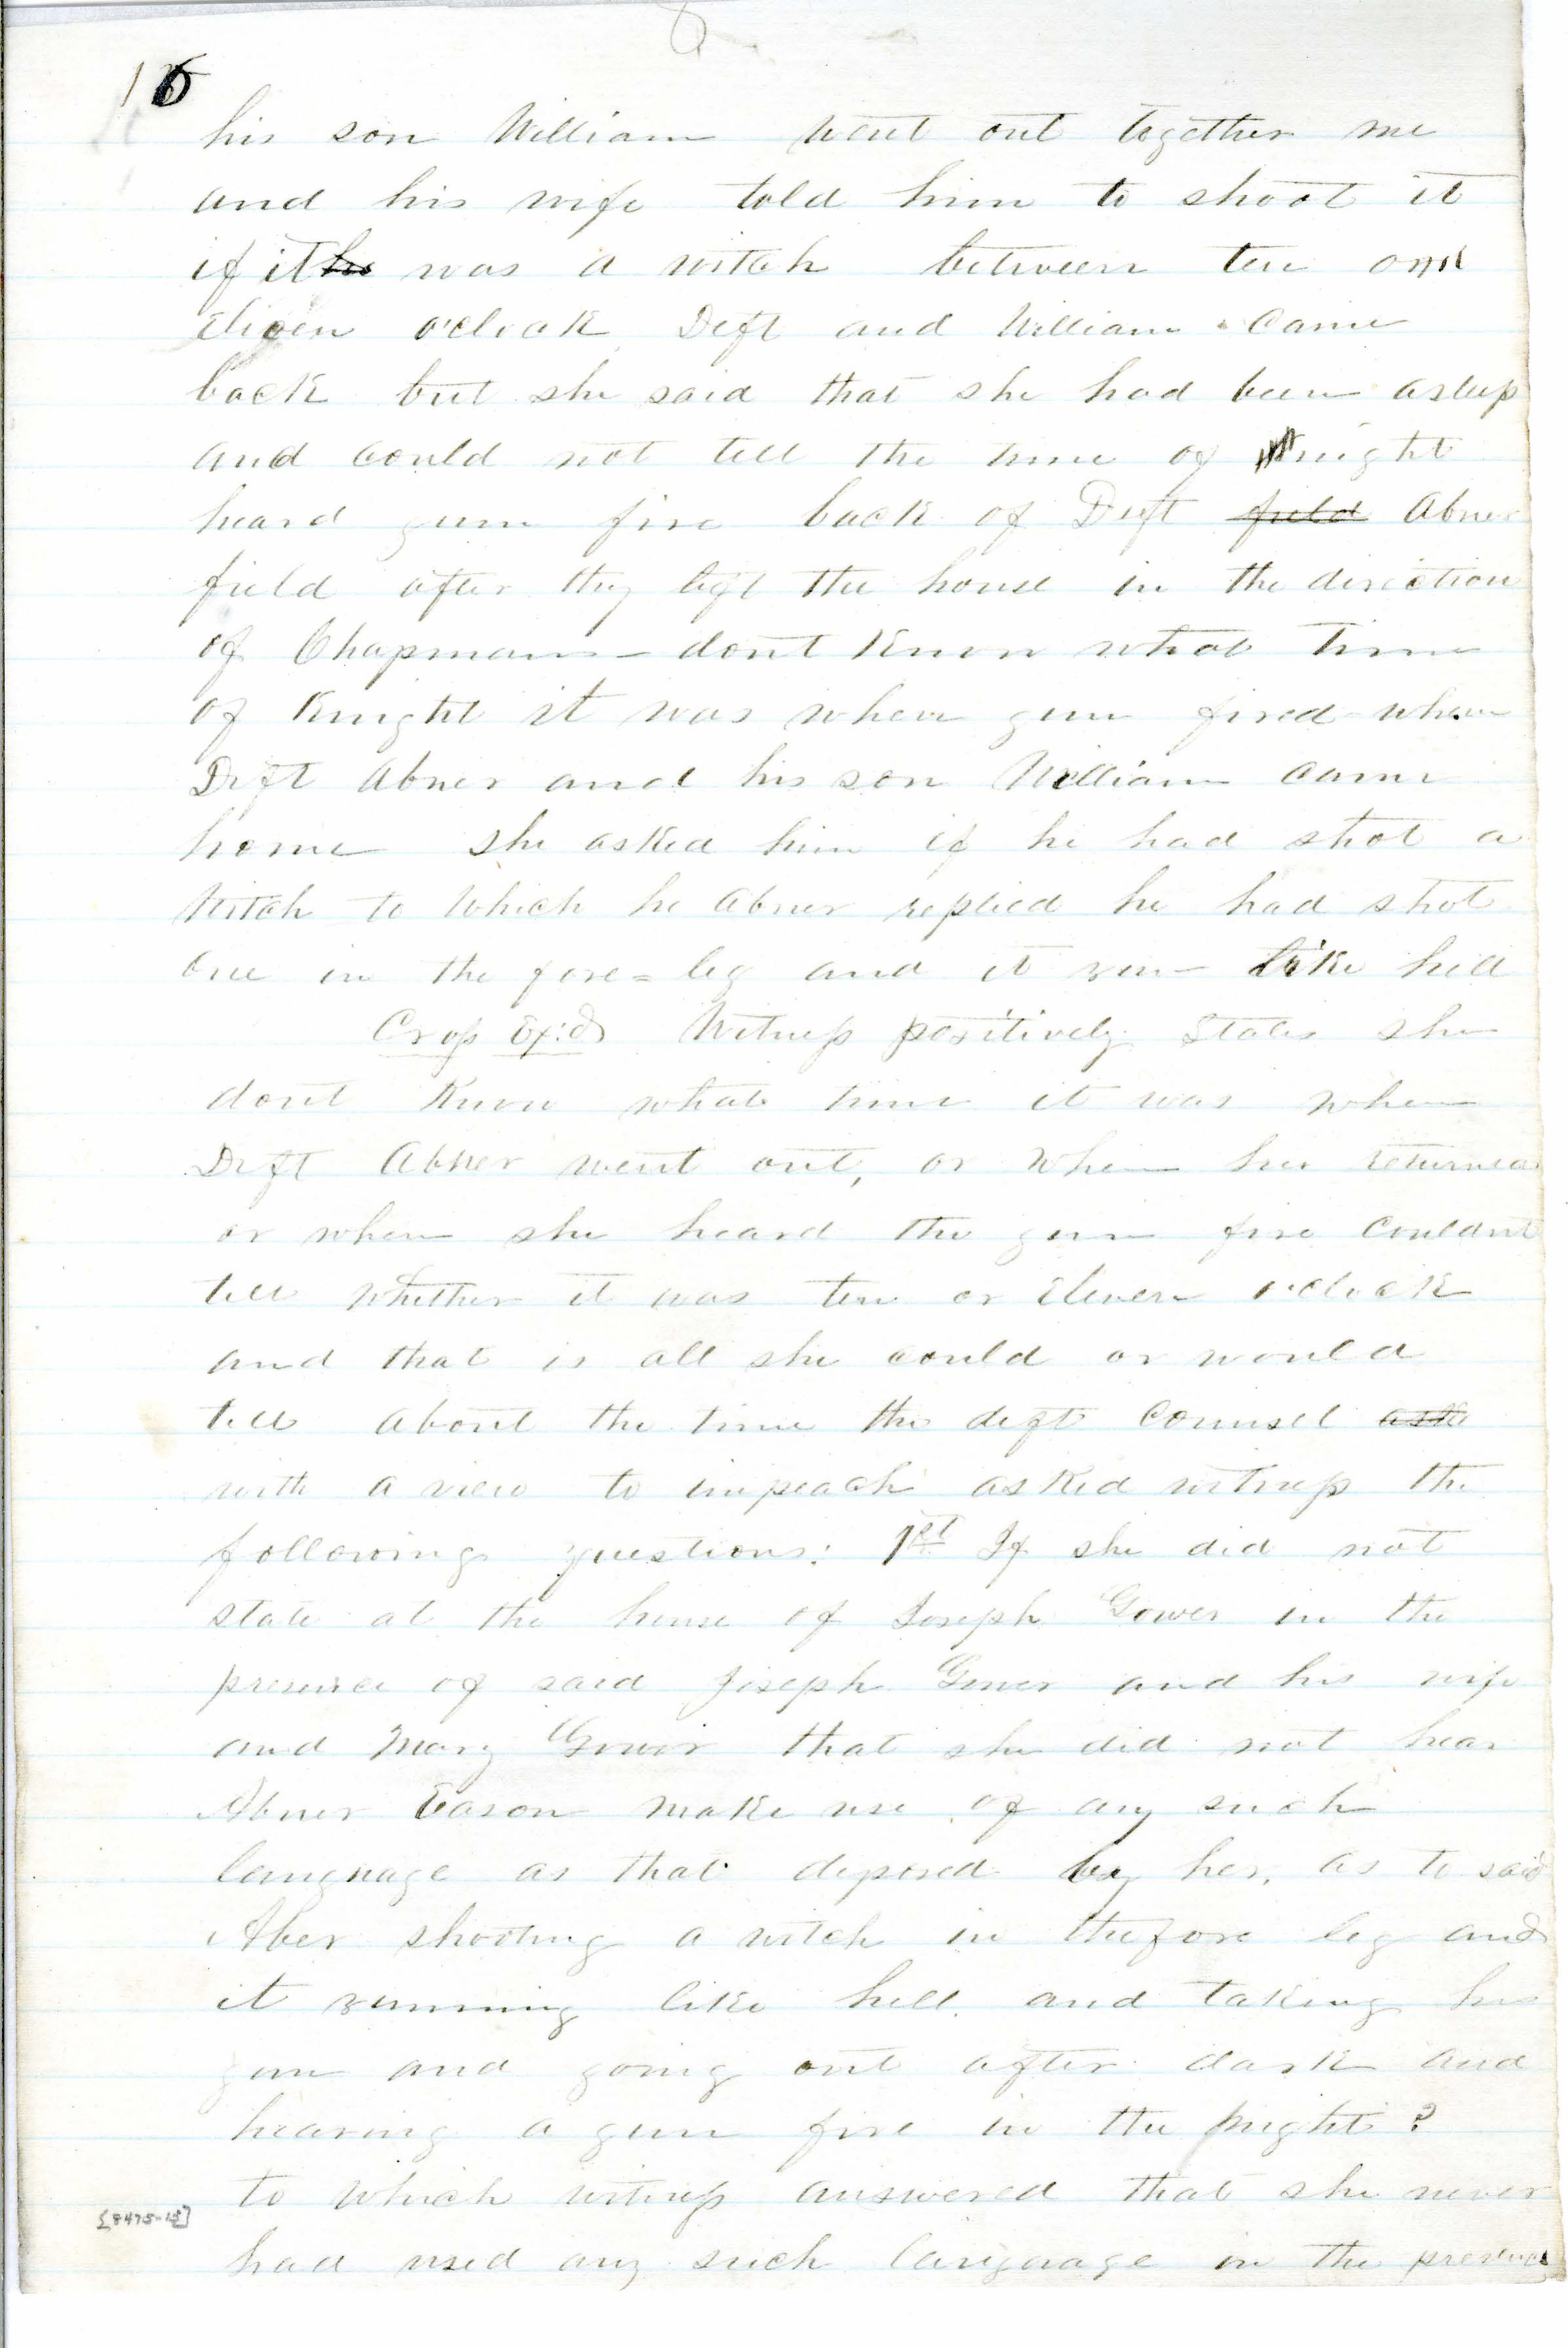 16
his son William went out together me
and his wife told him to shoot it
if it ~~he~~ was a witch between ten and
eleven o'clock Deft and William came
back but she said that she had been asleep
and could not tell the time of night
heard gun fire back of Deft ~~field~~ Abner
field after they left the house in the direction
of Chapmans - dont know what time
of Knight it was when gun fired when
Deft Abner and his son William came
home she asked him if he had shot a
witch to which he Abner replied he had shot
one in the fore=leg and it run like hell
Cross Ex:d Witness positively states she
dont know what time it was when
Deft Abner went out, or when he returned
or when she heard the gun fire couldnt
tell whether it was ten or eleven o'clock
and that is all she could or would
tell about the time the deft counsel ~~ask~~
with a view to impeach asked witness the
following questions: 1st If she did not
state at the house of Joseph Gower in the
presence of said Joseph Gower and his wife
and Mary Gower that she did not hear
Abner Eason make use of any such
language as that deposed by her, as to said
Aber shooting a witch in the fore leg and
it running like hell. and taking his
gun and going out after dark and
hearing a gun fire in the night?
to which witness answered that she never
had used any such language in the presence
[8475-15]